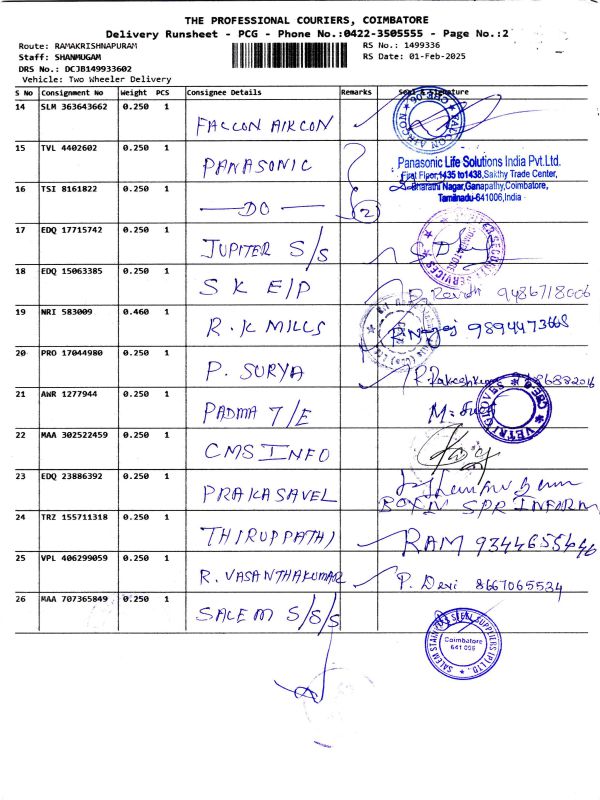 THE PROFESSIONAL COURIERS, COIMBATORE
Delivery Runsheet - PCG - Phone No.:0422-3505555 - Page No.:2
Route: RAMAKRISHNAPURAM RS No.: 1499336
Staff: SHANMUGAM RS Date: 01-Feb-2025
DRS No.: DCJB149933602
Vehicle: Two Wheeler Delivery
S No Consignment No Weight PCS Consignee Details Remarks Seal & Signature
14 SLM 363643662 0.250 1 FALCON AIRCON FALCON AIRCON
15 TVL 4402602 0.250 1 PANASONIC Panasonic Life Solutions India Pvt.Ltd.
First Floor,1435 to1438,Sakthy Trade Center,
16 TSI 8161822 0.250 1 DO 2 Bharathi Nagar,Ganapathy,Coimbatore,
Tamilnadu-641006,India
17 EDQ 17715742 0.250 1 JUPITER S/S
18 EDQ 15063385 0.250 1 S K E/P 9486718006
19 NRI 583009 0.460 1 R.K MILLS R.Nagaj 9894473668
20 PRO 17044980 0.250 1 P. SURYA
21 AWR 1277944 0.250 1 PADMA T/E VETRI GLOVES CBE
22 MAA 302522459 0.250 1 CMS INFO
23 EDQ 23886392 0.250 1 PRAKASAVEL
24 TRZ 155711318 0.250 1 THIRUPPATHI RAM 9344655446
25 VPL 406299059 0.250 1 R. VASANTHAKUMAR P. Devi 8667065534
26 MAA 707365849 0.250 1 SALEM S/S/S SALEM STAINLESS STEEL SUPPLIERS (P) LTD.
Coimbatore
641 006